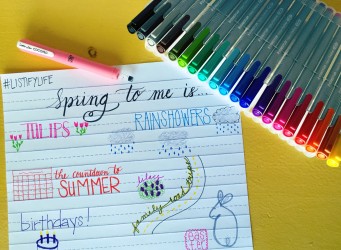 #LISTIFYLIFE
Spring to me is...
TULIPS
RAINSHOWERS
the countdown to
SUMMER
lilacs
family road trips
birthdays!